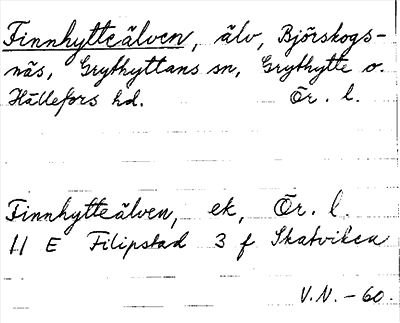 Finnhytteälven, älv, Björskogs-
näs, Grythyttans sn, Grythytte o.
Hällefors hd. Ör. l.
Finnhytteälven, ek, Ör. l.
11 E Filipstad 3 f Skatviken
V.N. - 60.